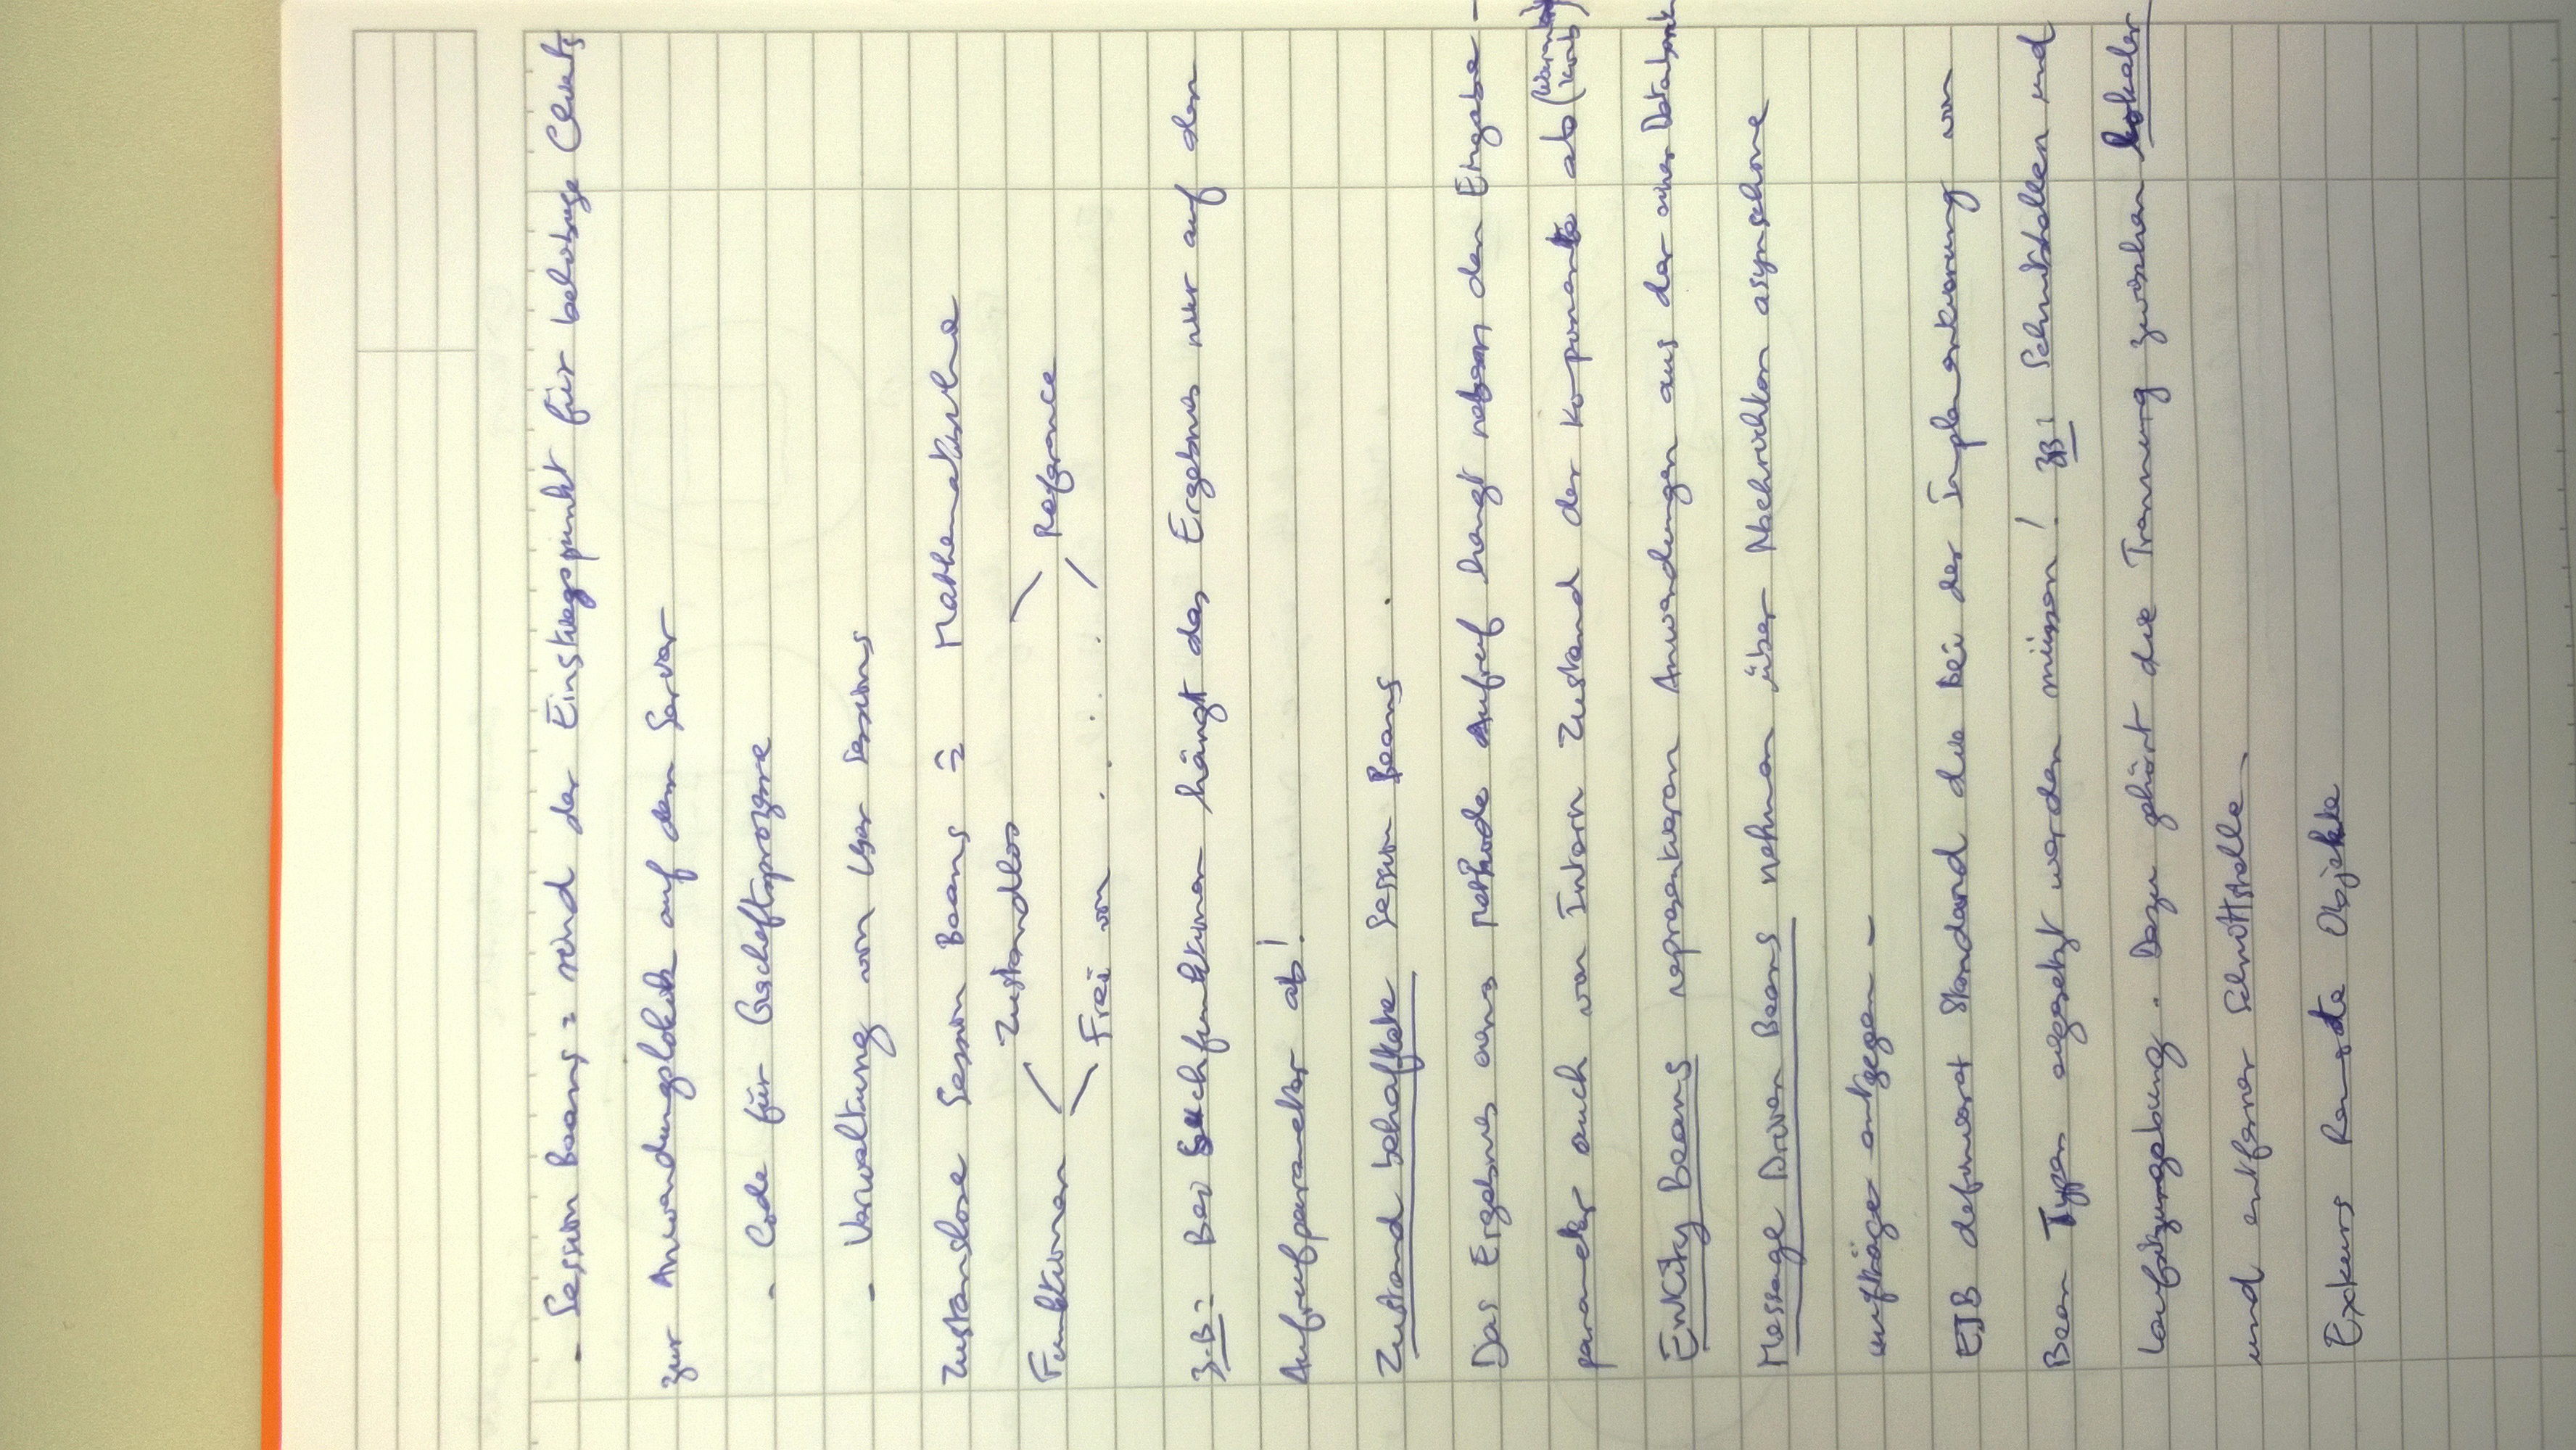 - Session Beans = sind der Einstiegspunkt für beliebige Clients
zur Anwendungslokik auf dem Server
- Code für Geschäftsprozesse
- Verwaltung von User Sessions
Zustandslose Session Beans = Mathematische
Zustandlos
Funktionen Reference
Frei von . . . . .
z.B: Bei Suchfunktionen hängt das Ergebnis nur auf den
Aufrufparameter ab!
Zustand behaftete Session Beans
Das Ergebnis eines Methode Aufruf hängt neben den Eingabe-
parameter auch von Intern Zustand der Komponente ab (Warenkorb)
Entity Beans representieren Anwendungen aus der einer Datenbank
Message Driven Beans nehmen über Nachrichten asynschrone
aufträge entgegen -
EJB definieret Standard die bei der Implementierung von
Bean Typen eigesetzt werden müssen! zB: Schnittstellen und
Laufzeitumgebung. Dazu gehört die Trennung zwischen lokaler
und entferner Schnittstelle
Exkurs Remote Objekte